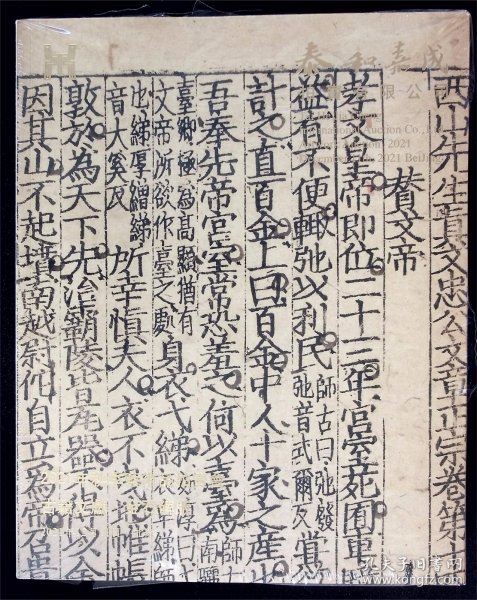 西山先生真文忠公文章正宗卷第十
贊文帝
孝文皇帝即位二十三年宮室苑囿車
益有不便輒弛以利民師古曰弛廢弛音式爾反嘗
計之直百金上曰百金中人十家之產也
吾奉先帝宮室常恐羞之何以臺為
臺卿極為高顯猶有文帝所欲作臺之處身衣弋綈
也綈厚繒綈音大奚反所幸慎夫人衣不曳地帷帳
敦朴為天下先治霸陵皆瓦器不得以金
因其山不起墳南越尉佗自立為帝召貴
泰和嘉成
拍賣有限公司
International Auction Co., Ltd
Autumn Auction 2021
2021 Beijing
孔夫子旧书网